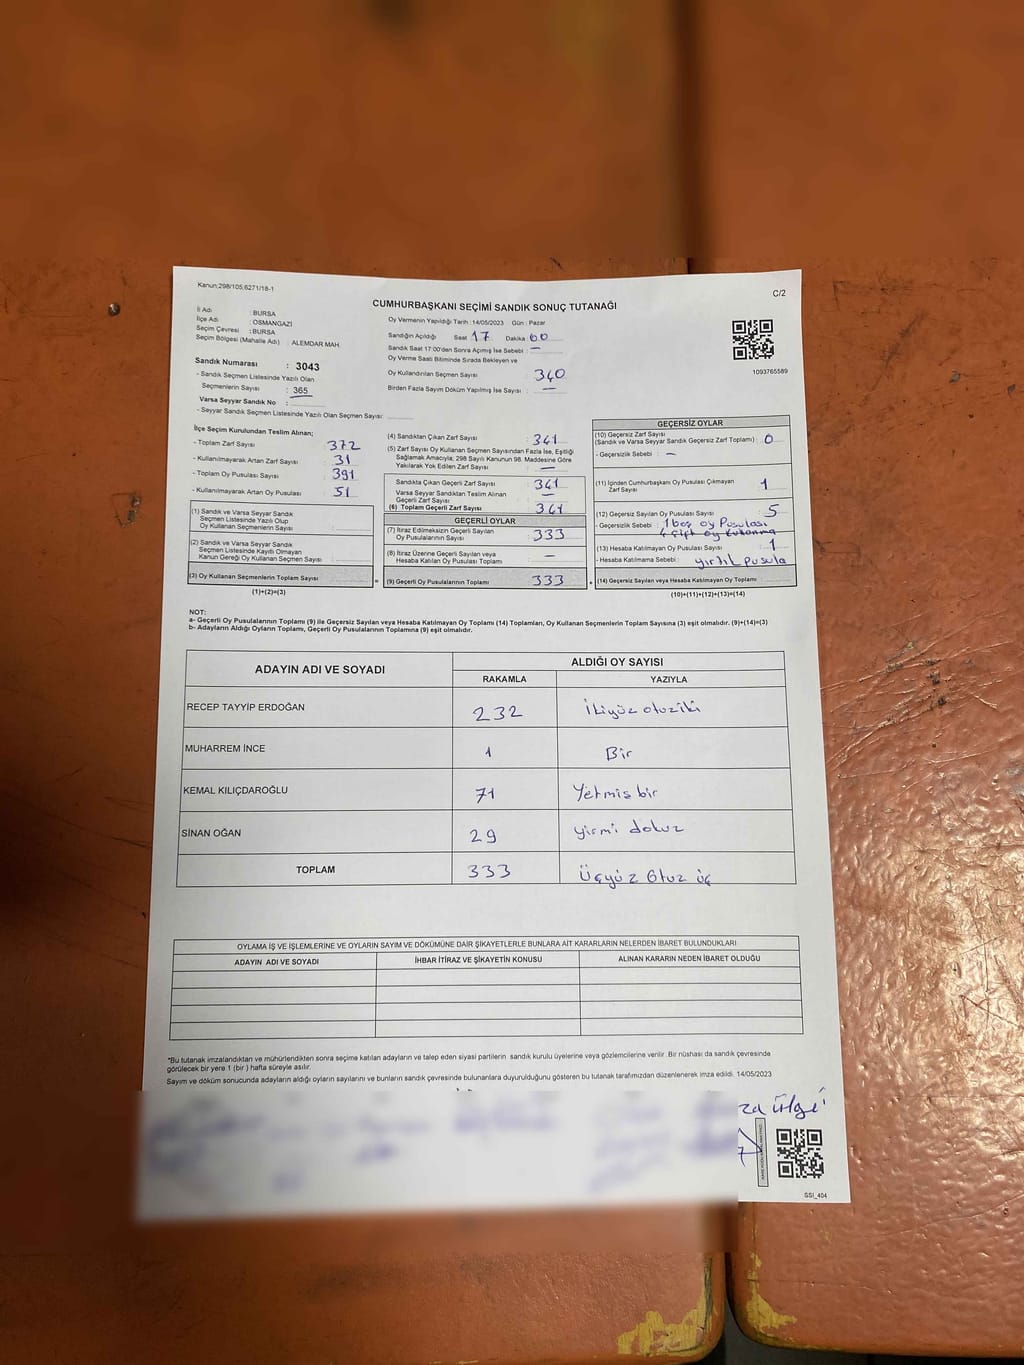 Kanun:298/105;6271/18-1
C/2
CUMHURBAŞKANI SEÇİMİ SANDIK SONUÇ TUTANAĞI
İl Adı : BURSA
İlçe Adı : OSMANGAZİ
Seçim Çevresi : BURSA
Seçim Bölgesi (Mahalle Adı) : ALEMDAR MAH.
Sandık Numarası : 3043
- Sandık Seçmen Listesinde Yazılı Olan
Seçmenlerin Sayısı : 365
Varsa Seyyar Sandık No :
- Seyyar Sandık Seçmen Listesinde Yazılı Olan Seçmen Sayısı:
Oy Vermenin Yapıldığı Tarih :14/05/2023 Gün : Pazar
Sandığın Açıldığı Saat 17 Dakika 00
Sandık Saat 17:00'den Sonra Açımış İse Sebebi : —
Oy Verme Saati Bitiminde Sırada Bekleyen ve
Oy Kullandırılan Seçmen Sayısı : 340
Birden Fazla Sayım Döküm Yapılmış İse Sayısı : —
1093765589
İlçe Seçim Kurulundan Teslim Alınan;
- Toplam Zarf Sayısı : 372
- Kullanılmayarak Artan Zarf Sayısı : 31
- Toplam Oy Pusulası Sayısı : 391
- Kullanılmayarak Artan Oy Pusulası : 51
(1) Sandık ve Varsa Seyyar Sandık
Seçmen Listesinde Yazılı Olup
Oy Kullanan Seçmenlerin Sayısı :
(2) Sandık ve Varsa Seyyar Sandık
Seçmen Listesinde Kayıtlı Olmayan
Kanun Gereği Oy Kullanan Seçmen Sayısı :
(3) Oy Kullanan Seçmenlerin Toplam Sayısı :
(1)+(2)=(3)
=
(4) Sandıktan Çıkan Zarf Sayısı : 341
(5) Zarf Sayısı Oy Kullanan Seçmen Sayısından Fazla İse, Eşitliği
Sağlamak Amacıyla; 298 Sayılı Kanunun 98. Maddesine Göre
Yakılarak Yok Edilen Zarf Sayısı : —
Sandıkta Çıkan Geçerli Zarf Sayısı : 341
Varsa Seyyar Sandıktan Teslim Alınan
Geçerli Zarf Sayısı : —
(6) Toplam Geçerli Zarf Sayısı : 341
GEÇERLİ OYLAR
(7) İtiraz Edilmeksizin Geçerli Sayılan
Oy Pusulalarının Sayısı : 333
(8) İtiraz Üzerine Geçerli Sayılan veya
Hesaba Katılan Oy Pusulası Toplamı : —
(9) Geçerli Oy Pusulalarının Toplamı : 333
+
GEÇERSİZ OYLAR
(10) Geçersiz Zarf Sayısı
(Sandık ve Varsa Seyyar Sandık Geçersiz Zarf Toplamı) : 0
- Geçersizlik Sebebi : —
(11) İçinden Cumhurbaşkanı Oy Pusulası Çıkmayan
Zarf Sayısı : 1
(12) Geçersiz Sayılan Oy Pusulası Sayısı : 5
- Geçersizlik Sebebi : 1 boş oy Pusulası
4 çift oy kullanma
(13) Hesaba Katılmayan Oy Pusulası Sayısı : 1
- Hesaba Katılmama Sebebi : yırtıl pusula
(14) Geçersiz Sayılan veya Hesaba Katılmayan Oy Toplamı :
(10)+(11)+(12)+(13)=(14)
NOT:
a- Geçerli Oy Pusulalarının Toplamı (9) ile Geçersiz Sayılan veya Hesaba Katılmayan Oy Toplamı (14) Toplamları, Oy Kullanan Seçmenlerin Toplam Sayısına (3) eşit olmalıdır. (9)+(14)=(3)
b- Adayların Aldığı Oyların Toplamı, Geçerli Oy Pusulalarının Toplamına (9) eşit olmalıdır.
ADAYIN ADI VE SOYADI ALDIĞI OY SAYISI
RAKAMLA YAZIYLA
RECEP TAYYİP ERDOĞAN 232 İkiyüz otuziki
MUHARREM İNCE 1 Bir
KEMAL KILIÇDAROĞLU 71 Yetmiş bir
SİNAN OĞAN 29 yirmi dokuz
TOPLAM 333 Üçyüz Otuz üç
OYLAMA İŞ VE İŞLEMLERİNE VE OYLARIN SAYIM VE DÖKÜMÜNE DAİR ŞİKAYETLERLE BUNLARA AİT KARARLARIN NELERDEN İBARET BULUNDUKLARI
ADAYIN ADI VE SOYADI İHBAR İTİRAZ VE ŞİKAYETİN KONUSU ALINAN KARARIN NEDEN İBARET OLDUĞU
*Bu tutanak imzalandıktan ve mühürlendikten sonra seçime katılan adayların ve talep eden siyasi partilerin sandık kurulu üyelerine veya gözlemcilerine verilir. Bir nüshası da sandık çevresinde
görülecek bir yere 1 (bir ) hafta süreyle asılır.
Sayım ve döküm sonucunda adayların aldığı oyların sayılarını ve bunların sandık çevresinde bulunanlara duyurulduğunu gösteren bu tutanak tarafımızdan düzenlenerek imza edildi. 14/05/2023
SSI_404